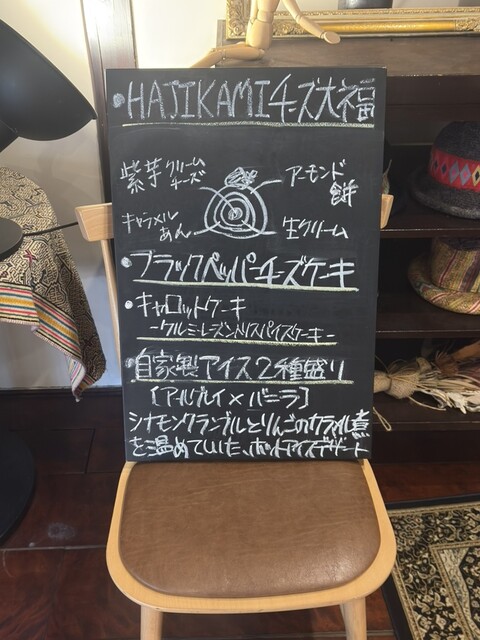 •HAJIKAMIチーズ大福
紫芋クリームチーズ
アーモンド
餅
キャラメル
あん
生クリーム
•ブラックペッパーチーズケーキ
•キャロットケーキ
-クルミ・レーズン入りスパイスケーキ-
•自家製アイス2種盛り
[アールグレイ×バニラ]
シナモンクランブルとりんごのカラメル煮
を温めていた、ホットアイスデザート